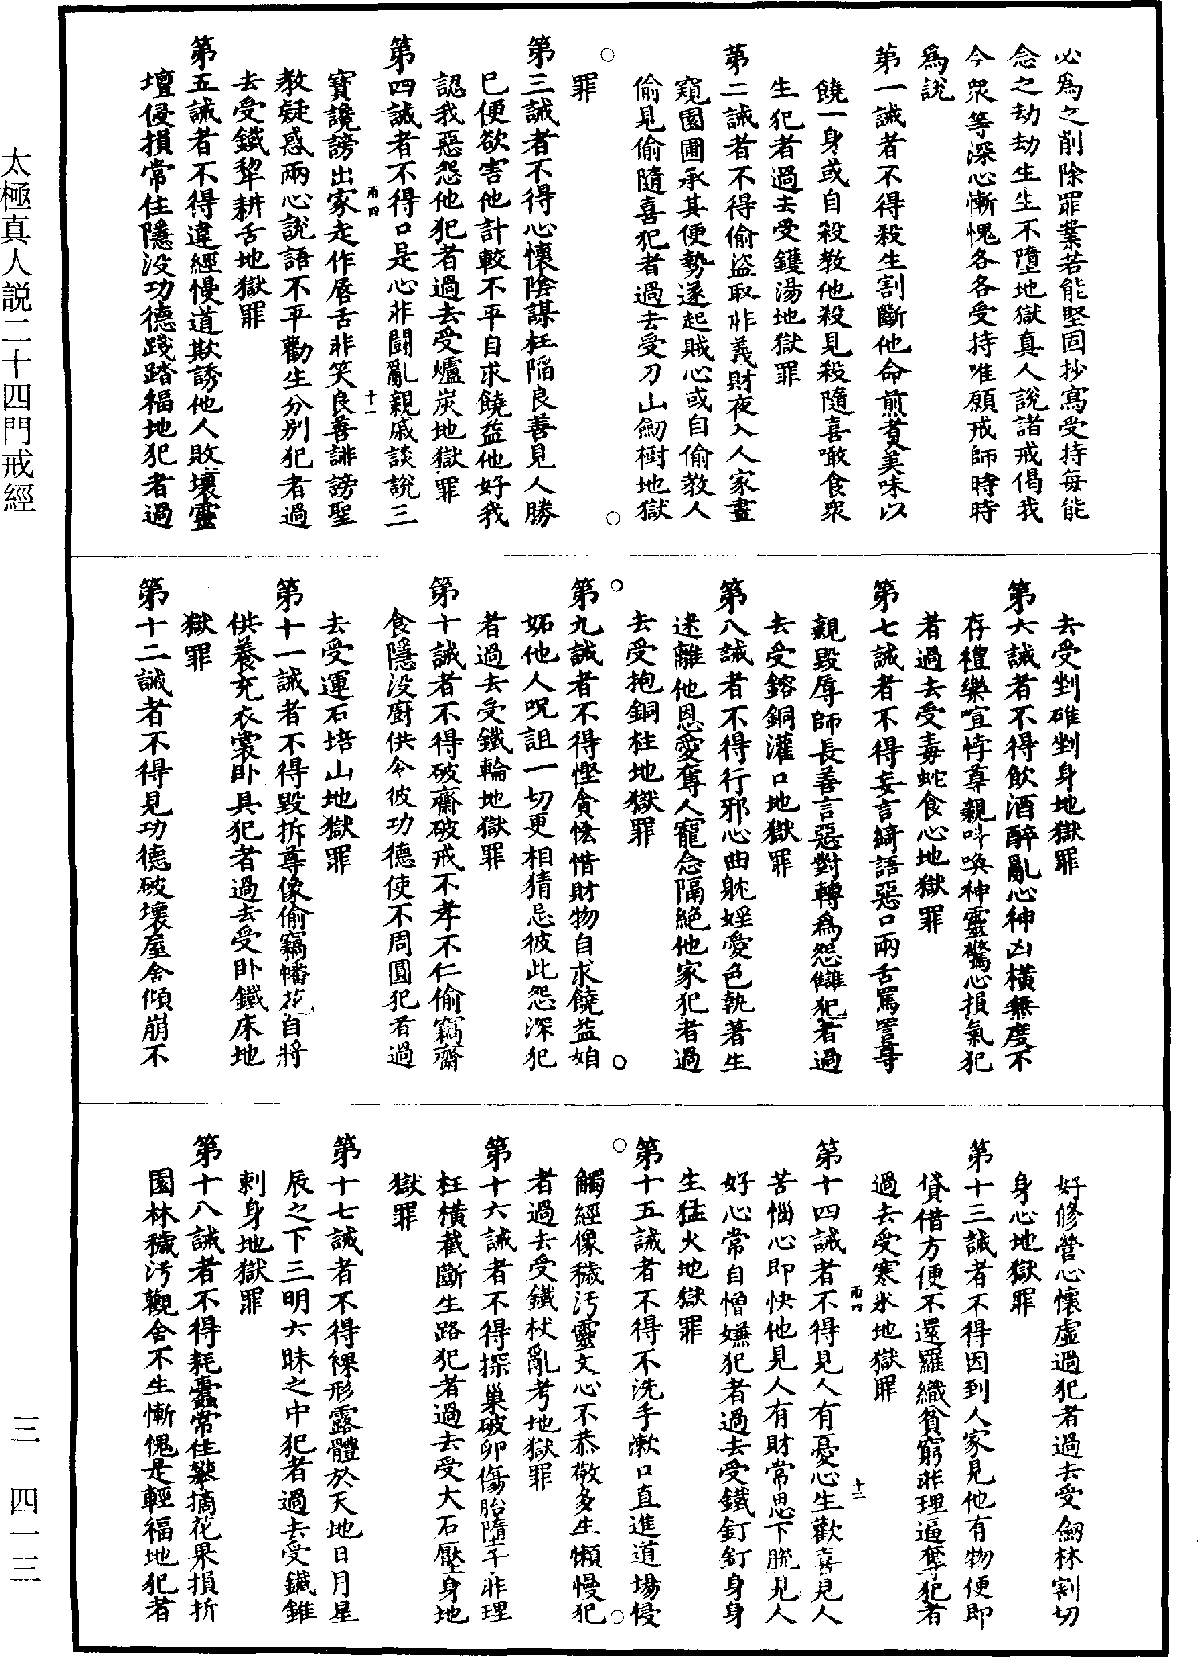 必爲之削除罪業若能堅固抄寫受持每能
念之劫劫生生不墮地獄真人說諸戒偈我
今衆等深心慚愧各各受持唯願戒師時時
爲說
第一誡者不得殺生割斷他命煎煑美味以
饒一身或自殺教他殺見殺隨喜噉食衆
生犯者過去受鑊湯地獄罪
第二誡者不得偷盜取非義財夜入人家晝
窺園圃承其便勢遂起賊心或自偷教人
偷見偷隨喜犯者過去受刀山劒樹地獄
罪
第三誡者不得心懷陰謀枉陷良善見人勝
已便欲害他計較不平自求饒益他好我
認我惡怨他犯者過去受爐炭地獄罪
第四誡者不得口是心非鬪亂親戚談說三
雨四 十一
寶讒謗出家走作唇舌非笑良善誹謗聖
教疑惑兩心說語不平勸生分別犯者過
去受鐵犂耕舌地獄罪
第五誡者不得違經慢道欺誘他人敗壞靈
壇侵損常住隱没功德踐踏福地犯者過
去受剉碓剉身地獄罪
第六誡者不得飲酒醉亂心神凶橫無度不
存禮樂喧悖尊親呌喚神靈驚心損氣犯
者過去受毒蛇食心地獄罪
第七誡者不得妄言綺語惡口兩舌罵詈尊
親毀辱師長善言惡對轉爲怨讎犯者過
去受鎔銅灌口地獄罪
第八誡者不得行邪心曲躭婬愛色執著生
迷離他恩愛奪人寵念隔絶他家犯者過
去受抱銅柱地獄罪
第九誡者不得慳貪恡惜財物自求饒益妲
妬他人呪詛一切更相猜忌彼此怨深犯
者過去受鐵輪地獄罪
第十誡者不得破齋破戒不孝不仁偷竊齋
食隱没厨供令彼功德使不周圓犯者過
去受運石培山地獄罪
第十一誡者不得毀拆尊像偷竊幡花自將
供養充衣裳卧具犯者過去受卧鐵床地
獄罪
第十二誡者不得見功德破壞屋舍傾崩不
好修營心懷虛過犯者過去受劒林割切
身心地獄罪
第十三誡者不得因到人家見他有物便即
貸借方便不還羅織貧窮非理逼奪犯者
過去受寒氷地獄罪
雨四 十二
第十四誡者不得見人有憂心生歡喜見人
苦惱心即快他見人有財常思下脫見人
好心常自憎嫌犯者過去受鐵釘釘身身
生猛火地獄罪
第十五誡者不得不洗手漱口直進道場侵
觸經像穢汚靈文心不恭敬多生懶慢犯
者過去受鐵杖亂考地獄罪
第十六誡者不得探巢破卵傷胎墮子非理
枉橫截斷生路犯者過去受大石壓身地
獄罪
第十七誡者不得裸形露體於天地日月星
辰之下三明六昧之中犯者過去受鐵錐
刺身地獄罪
第十八誡者不得耗蠹常住攀摘花果損折
園林穢汚觀舍不生慚愧是輕福地犯者
太極真人説二十四門戒經
三 四一三